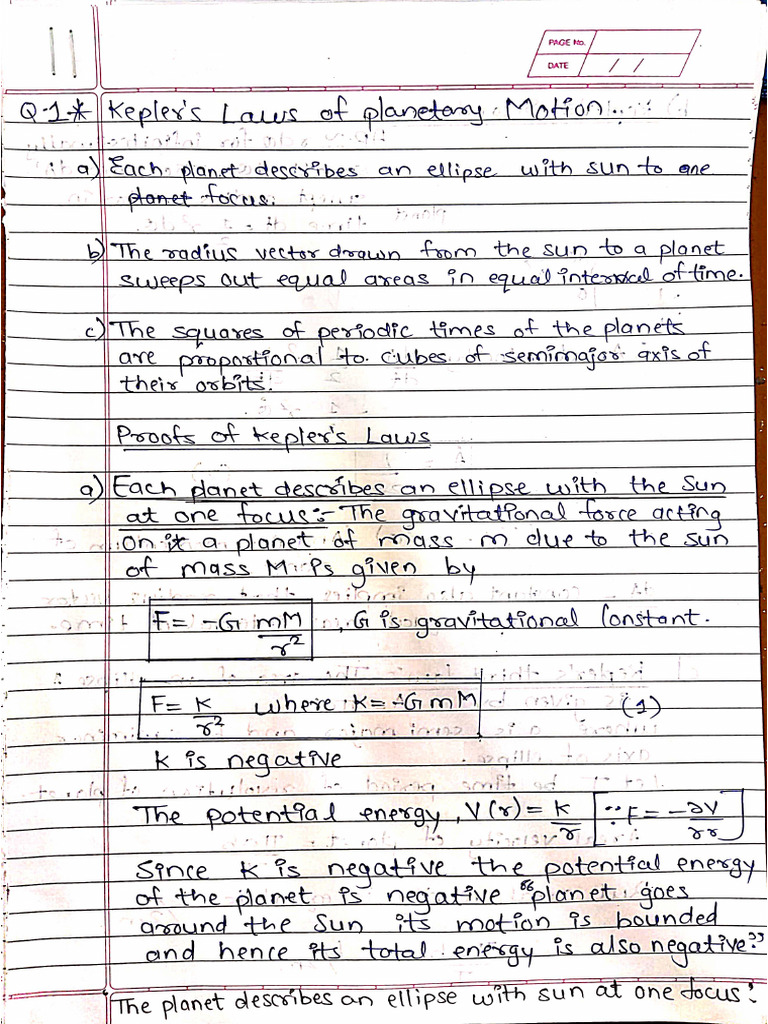 PAGE No.
DATE / /
Q-1* Kepler's Laws of planetary Motion.
a) Each planet describes an ellipse with sun to one
planet focus.
b) The radius vector drawn from the sun to a planet
sweeps out equal areas in equal interval of time.
c) The squares of periodic times of the planets
are proportional to cubes of semimajor axis of
their orbits.
Proofs of Kepler's Laws
a) Each planet describes an ellipse with the Sun
at one focus:- The gravitational force acting
on it a planet of mass m due to the sun
of mass M is given by
F = -G mM/r² , G is gravitational Constant.
F = K/r² where K = -GmM (1)
K is negative
The potential energy, V(r) = K/r [∵ F = -∂V/∂r]
Since K is negative the potential energy
of the planet is negative "planet goes
around the Sun its motion is bounded
and hence its total energy is also negative"
The planet describes an ellipse with sun at one focus.